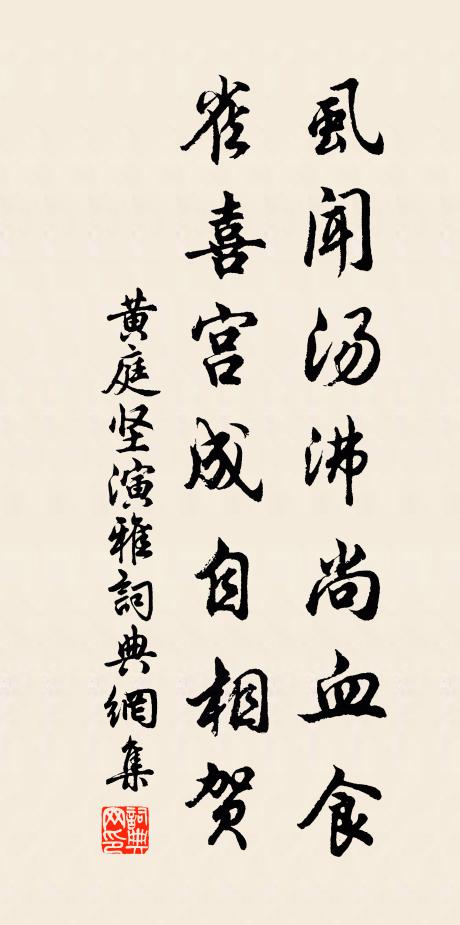 虱闻汤沸尚血食
雀喜宫成自相贺
黄庭坚演雅詞典網集
詞典网印